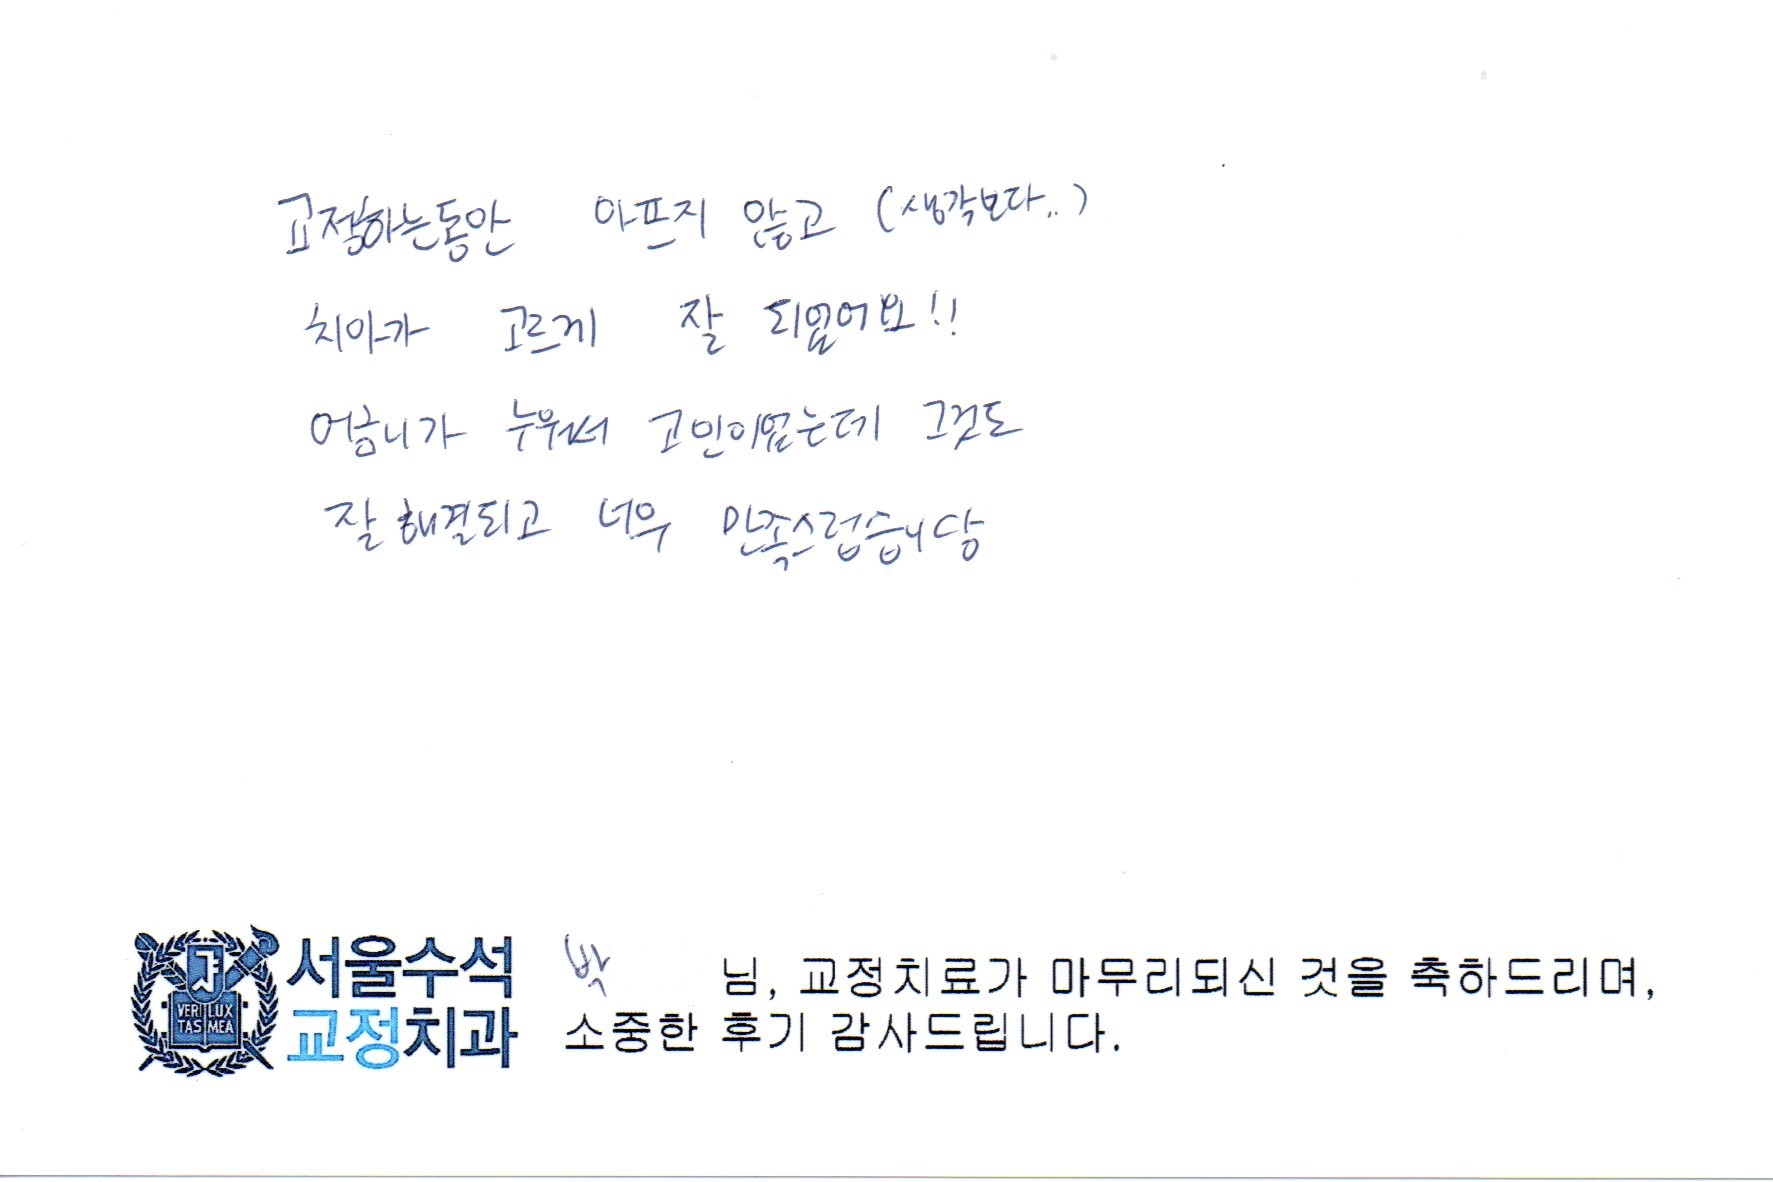 교정하는동안 아프지 않고 (생각보다..)
치아가 고르게 잘 되었어요!!
어금니가 누워서 고민이었는데 그것도
잘 해결되고 너무 만족스럽습니당
서울수석
교정치과
VERI LUX
TAS MEA
박 님, 교정치료가 마무리되신 것을 축하드리며,
소중한 후기 감사드립니다.